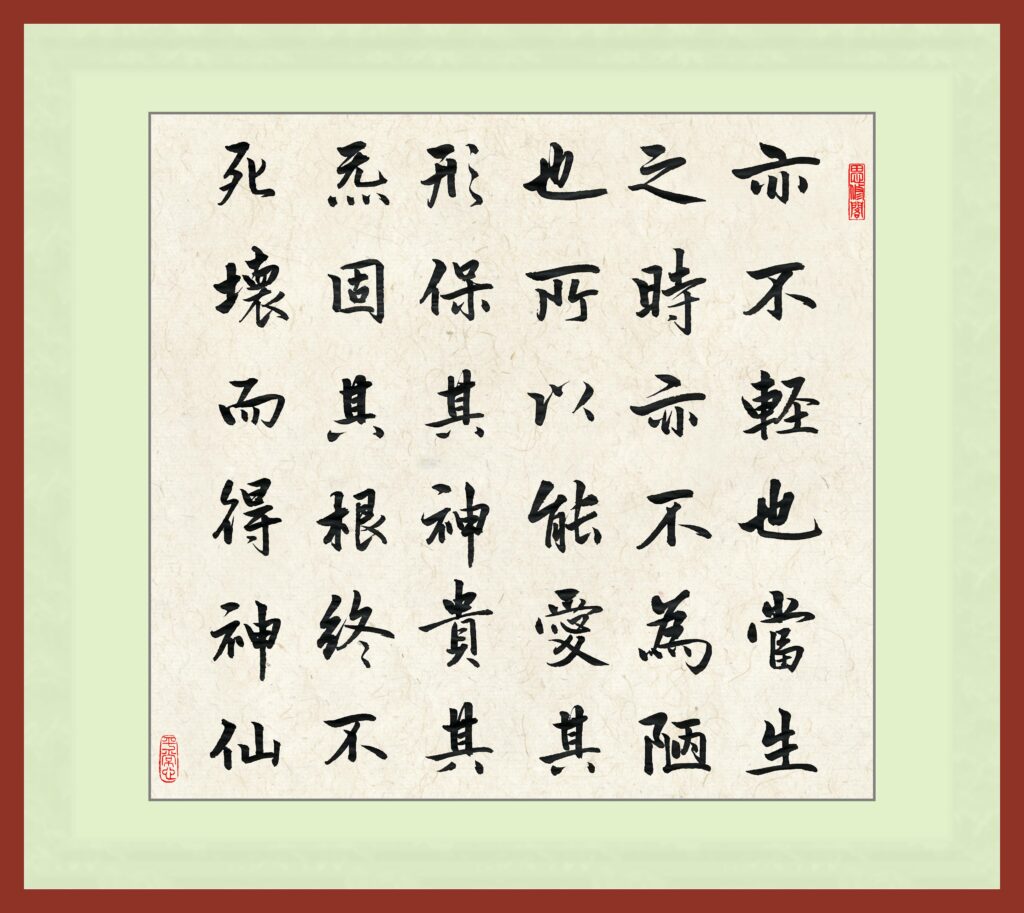 思修閣
亦不軽也當生
之時亦不為陋
也所以能愛其
形保其神貴其
炁固其根終不
死壞而得神仙
平常心